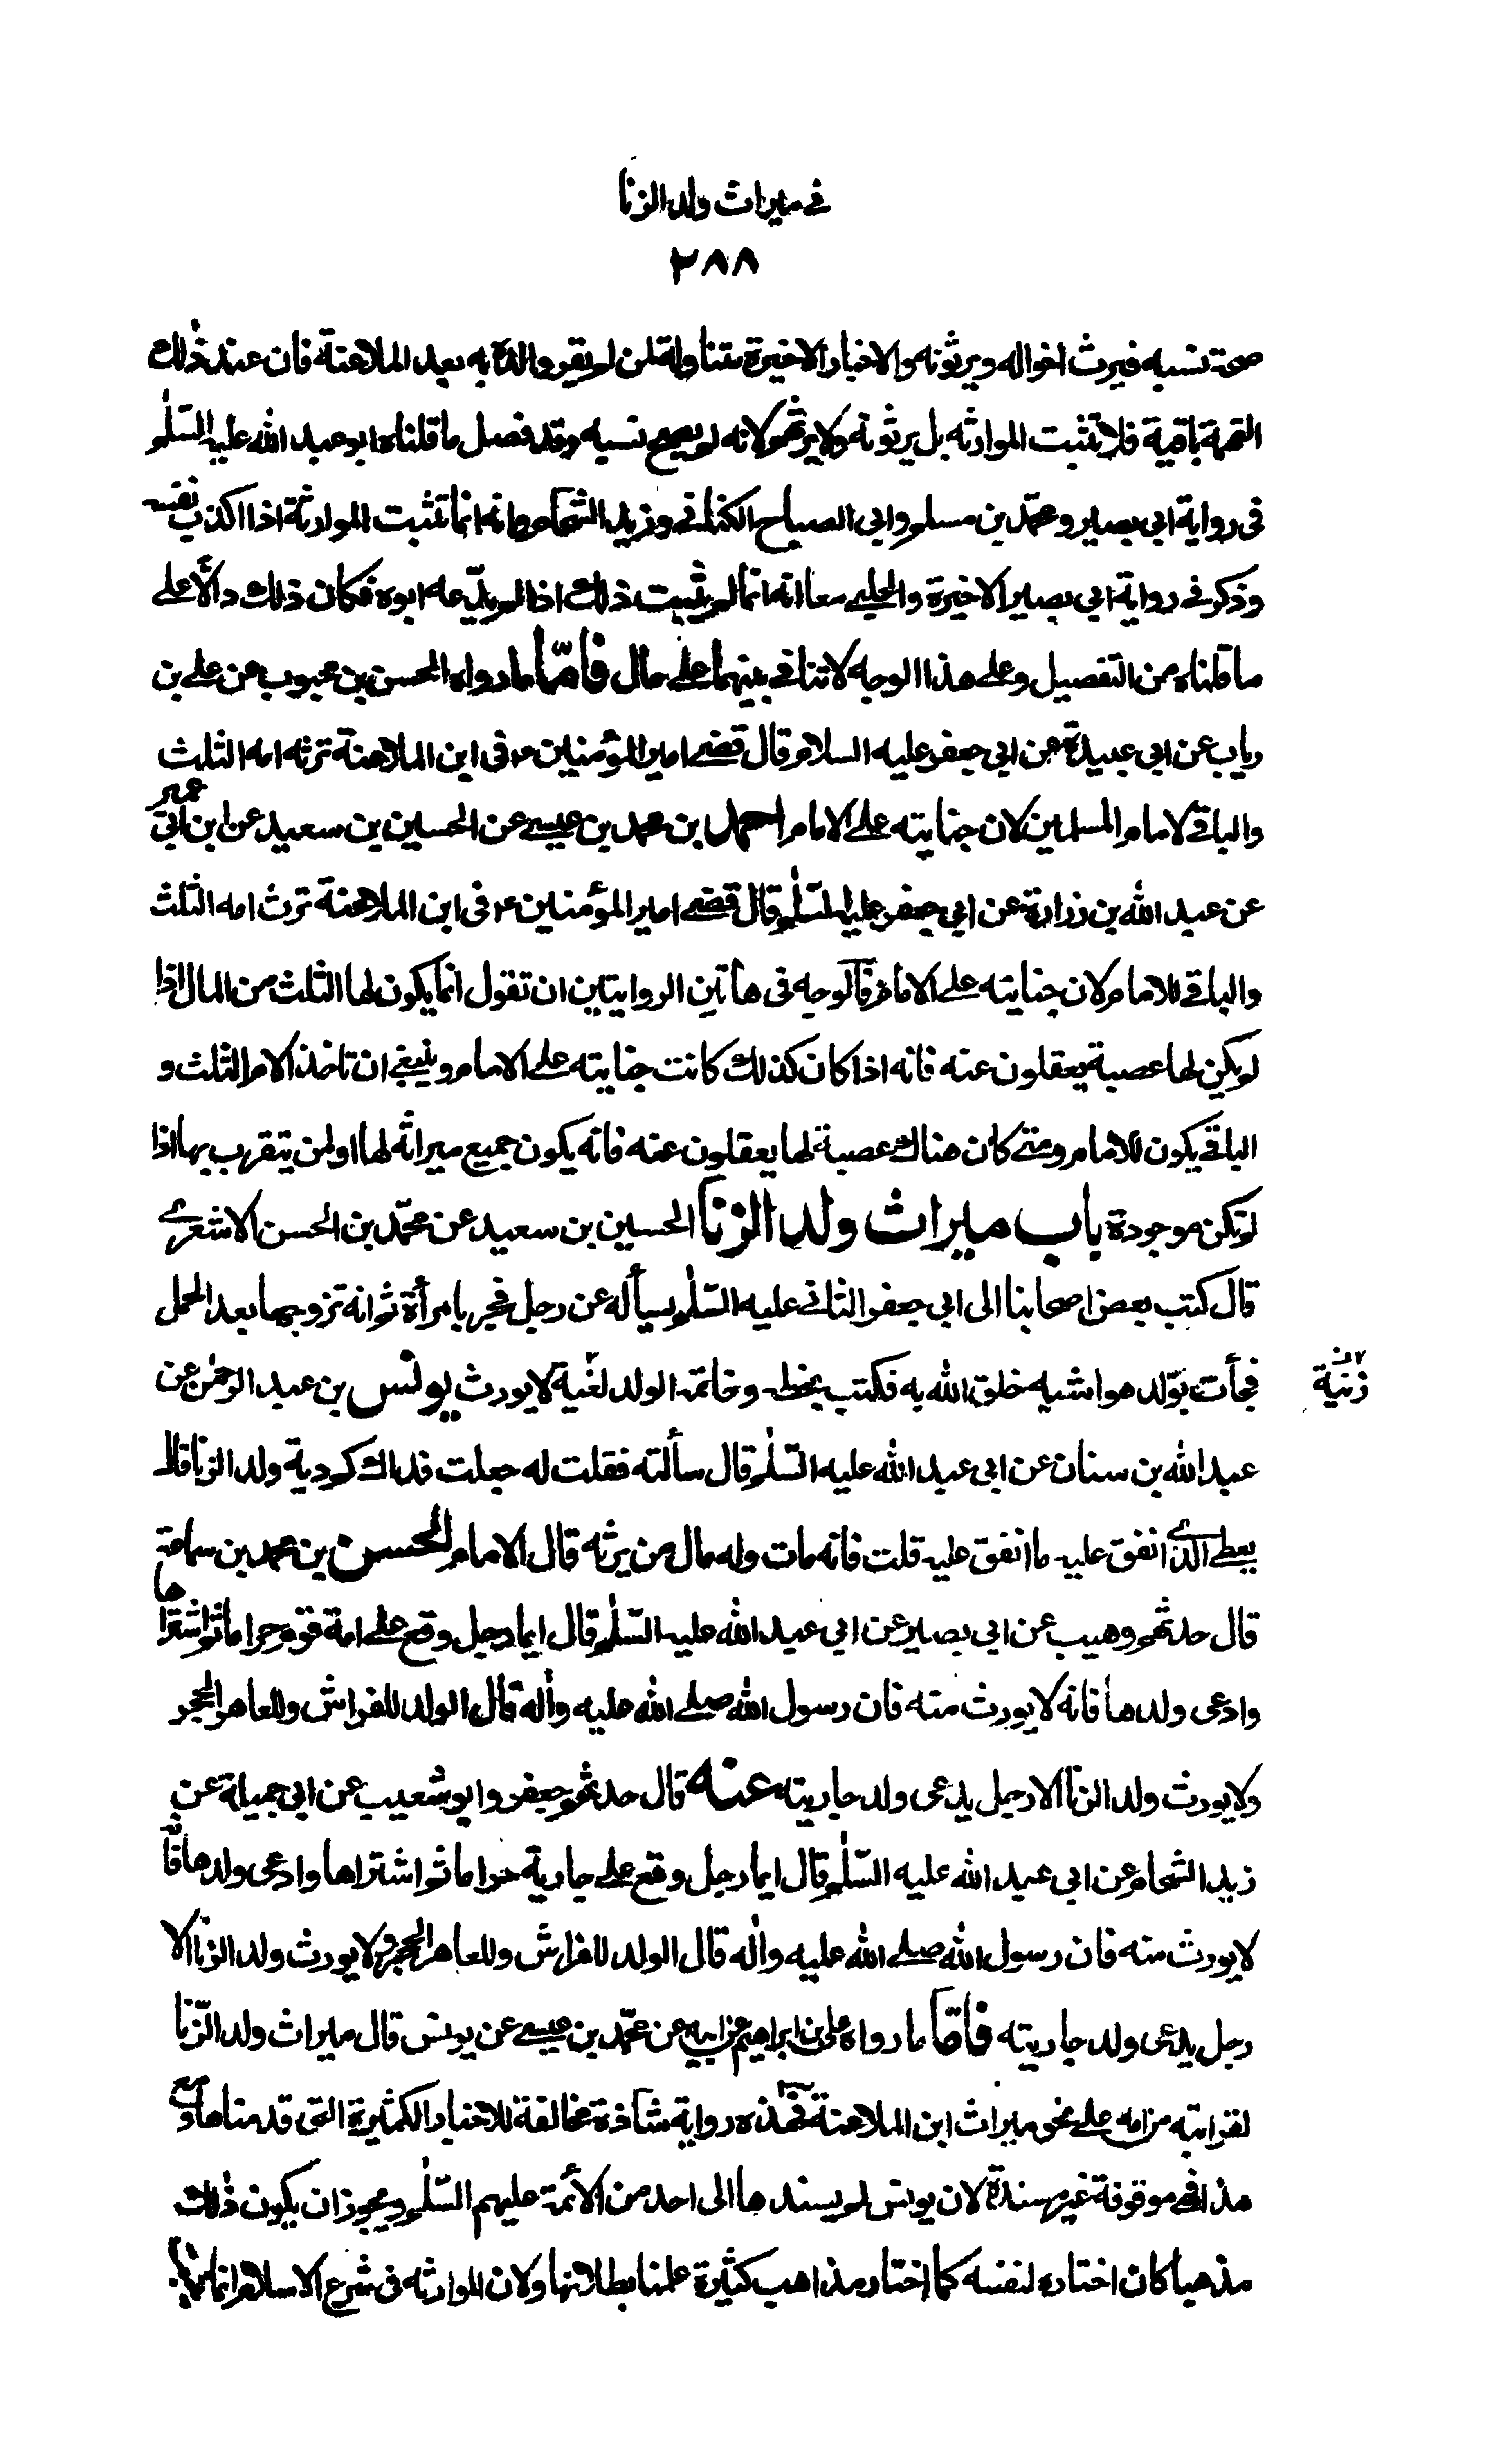 في ميراث ولد الزنا
٢٨٨
صحة نسبه فيرث اخواله ويرثونه والاخبار الاخيرة متناولة لمن لم يقر والده به بعد الملاعنة فان عند ذلك
التهمة باقية فلا تثبت الموارثه بل يرثونه ولا يرثهم لانه لم يصح نسبه وقد فصل ما قلناه ابو عبد الله عليه السلم
فى رواية ابى بصير ومحمد بن مسلم وابى الصباح الكنانى وزيد الشحام وانه انما تثبت الموارثة اذا اكذب نفسه
وذكر فى رواية ابى بصير الاخيرة والحلبى معا انه انما لم يثبت ذلك اذا لم يدّعه ابوه فكان ذلك دالا على
ما قلناه من التفصيل وعلى هذا الوجه لا تنافى بينهما على حال فامّا ما رواه الحسن بن محبوب عن على بن
رياب عن ابى عبيدة عن ابى جعفر عليه السلام قال قضى امير المؤمنين ع فى ابن الملاعنة ترثه امه الثلث
والباقى لامام المسلمين لان جنايته على الامام احمد ابن محمد بن عيسى عن الحسين بن سعيد عن ابن ابى عمير
عن عبد الله بن زرارة عن ابى جعفر عليه السّلم قال قضى امير المؤمنين ع فى ابن الملاعنة ترث امه الثلث
والباقى للامام لان جنايته على الامام فالوجه فى هاتين الروايتين ان تقول انما يكون لها الثلث من المال اذا
لم يكن لها عصبة يعقلون عنه فانه اذا كان كذلك كانت جنايته على الامام وينبغى ان تاخذ الام الثلث و
الباقى يكون للامام ومتى كان هناك عصبة لها يعقلون عنه فانه يكون جميع ميراثه لها او لمن يتقرب بها اذا
لم تكن موجودة باب ميراث ولد الزنا الحسين بن سعيد عن محمّد بن الحسن الاشعرى
قال كتب بعض اصحابنا الى ابى جعفر الثانى عليه السّلم يسأله عن رجل فجر بامرأة ثم انه تزوجها بعد الحمل
فجأت بولد هو اشبه خلق الله به فكتب بخطه وخاتمه الولد لغية لا يورث يونس بن عبد الرحمن عن
زنية
عبد الله بن سنان عن ابى عبد الله عليه السّلم قال سألته فقلت له جعلت فداك كم دية ولد الزنا قال
يعطى الذى انفق عليه ما انفق عليه قلت فانه مات وله مال من يرثه قال الامام الحسن بن محمد بن سماعة
قال حدثهم وهيب عن ابى بصير عن ابى عبد الله عليه السّلم قال ايما رجل وقع على امة قوم حراما ثم اشتراها
وادعى ولدها فانه لا يورث منه فان رسول الله صلى الله عليه وآله قال الولد للفراش وللعاهر الحجر
ولا يورث ولد الزنا الا رجل يدعى ولد جاريته عنه قال حدثهم جعفر وابو شعيب عن ابى جميلة عن
زيد الشحام عن ابى عبد الله عليه السّلم قال ايما رجل وقع على جارية حراما ثم اشتراها وادعى ولدها فانه
لا يورث منه فان رسول الله صلى الله عليه وآله قال الولد للفراش وللعاهر الحجر ولا يورث ولد الزنا الا
رجل يدعى ولد جاريته فامّا ما رواه على بن ابراهيم عن ابيه عن محمّد بن عيسى عن يونس قال ميراث ولد الزّنا
لقرابته من امه على نحو ميراث ابن الملاعنة فهذه رواية شاذة مخالفة للاخبار الكثيرة التى قدمناها ومع
هذا فهى موقوفة غير مسندة لان يونس لم يسندها الى احد من الأئمة عليهم السّلم ويجوز ان يكون ذلك
مذهبا كان اختاره لنفسه كما اختار مذاهب كثيرة علمنا بطلانها ولان الموارثه فى شرع الاسلام انما